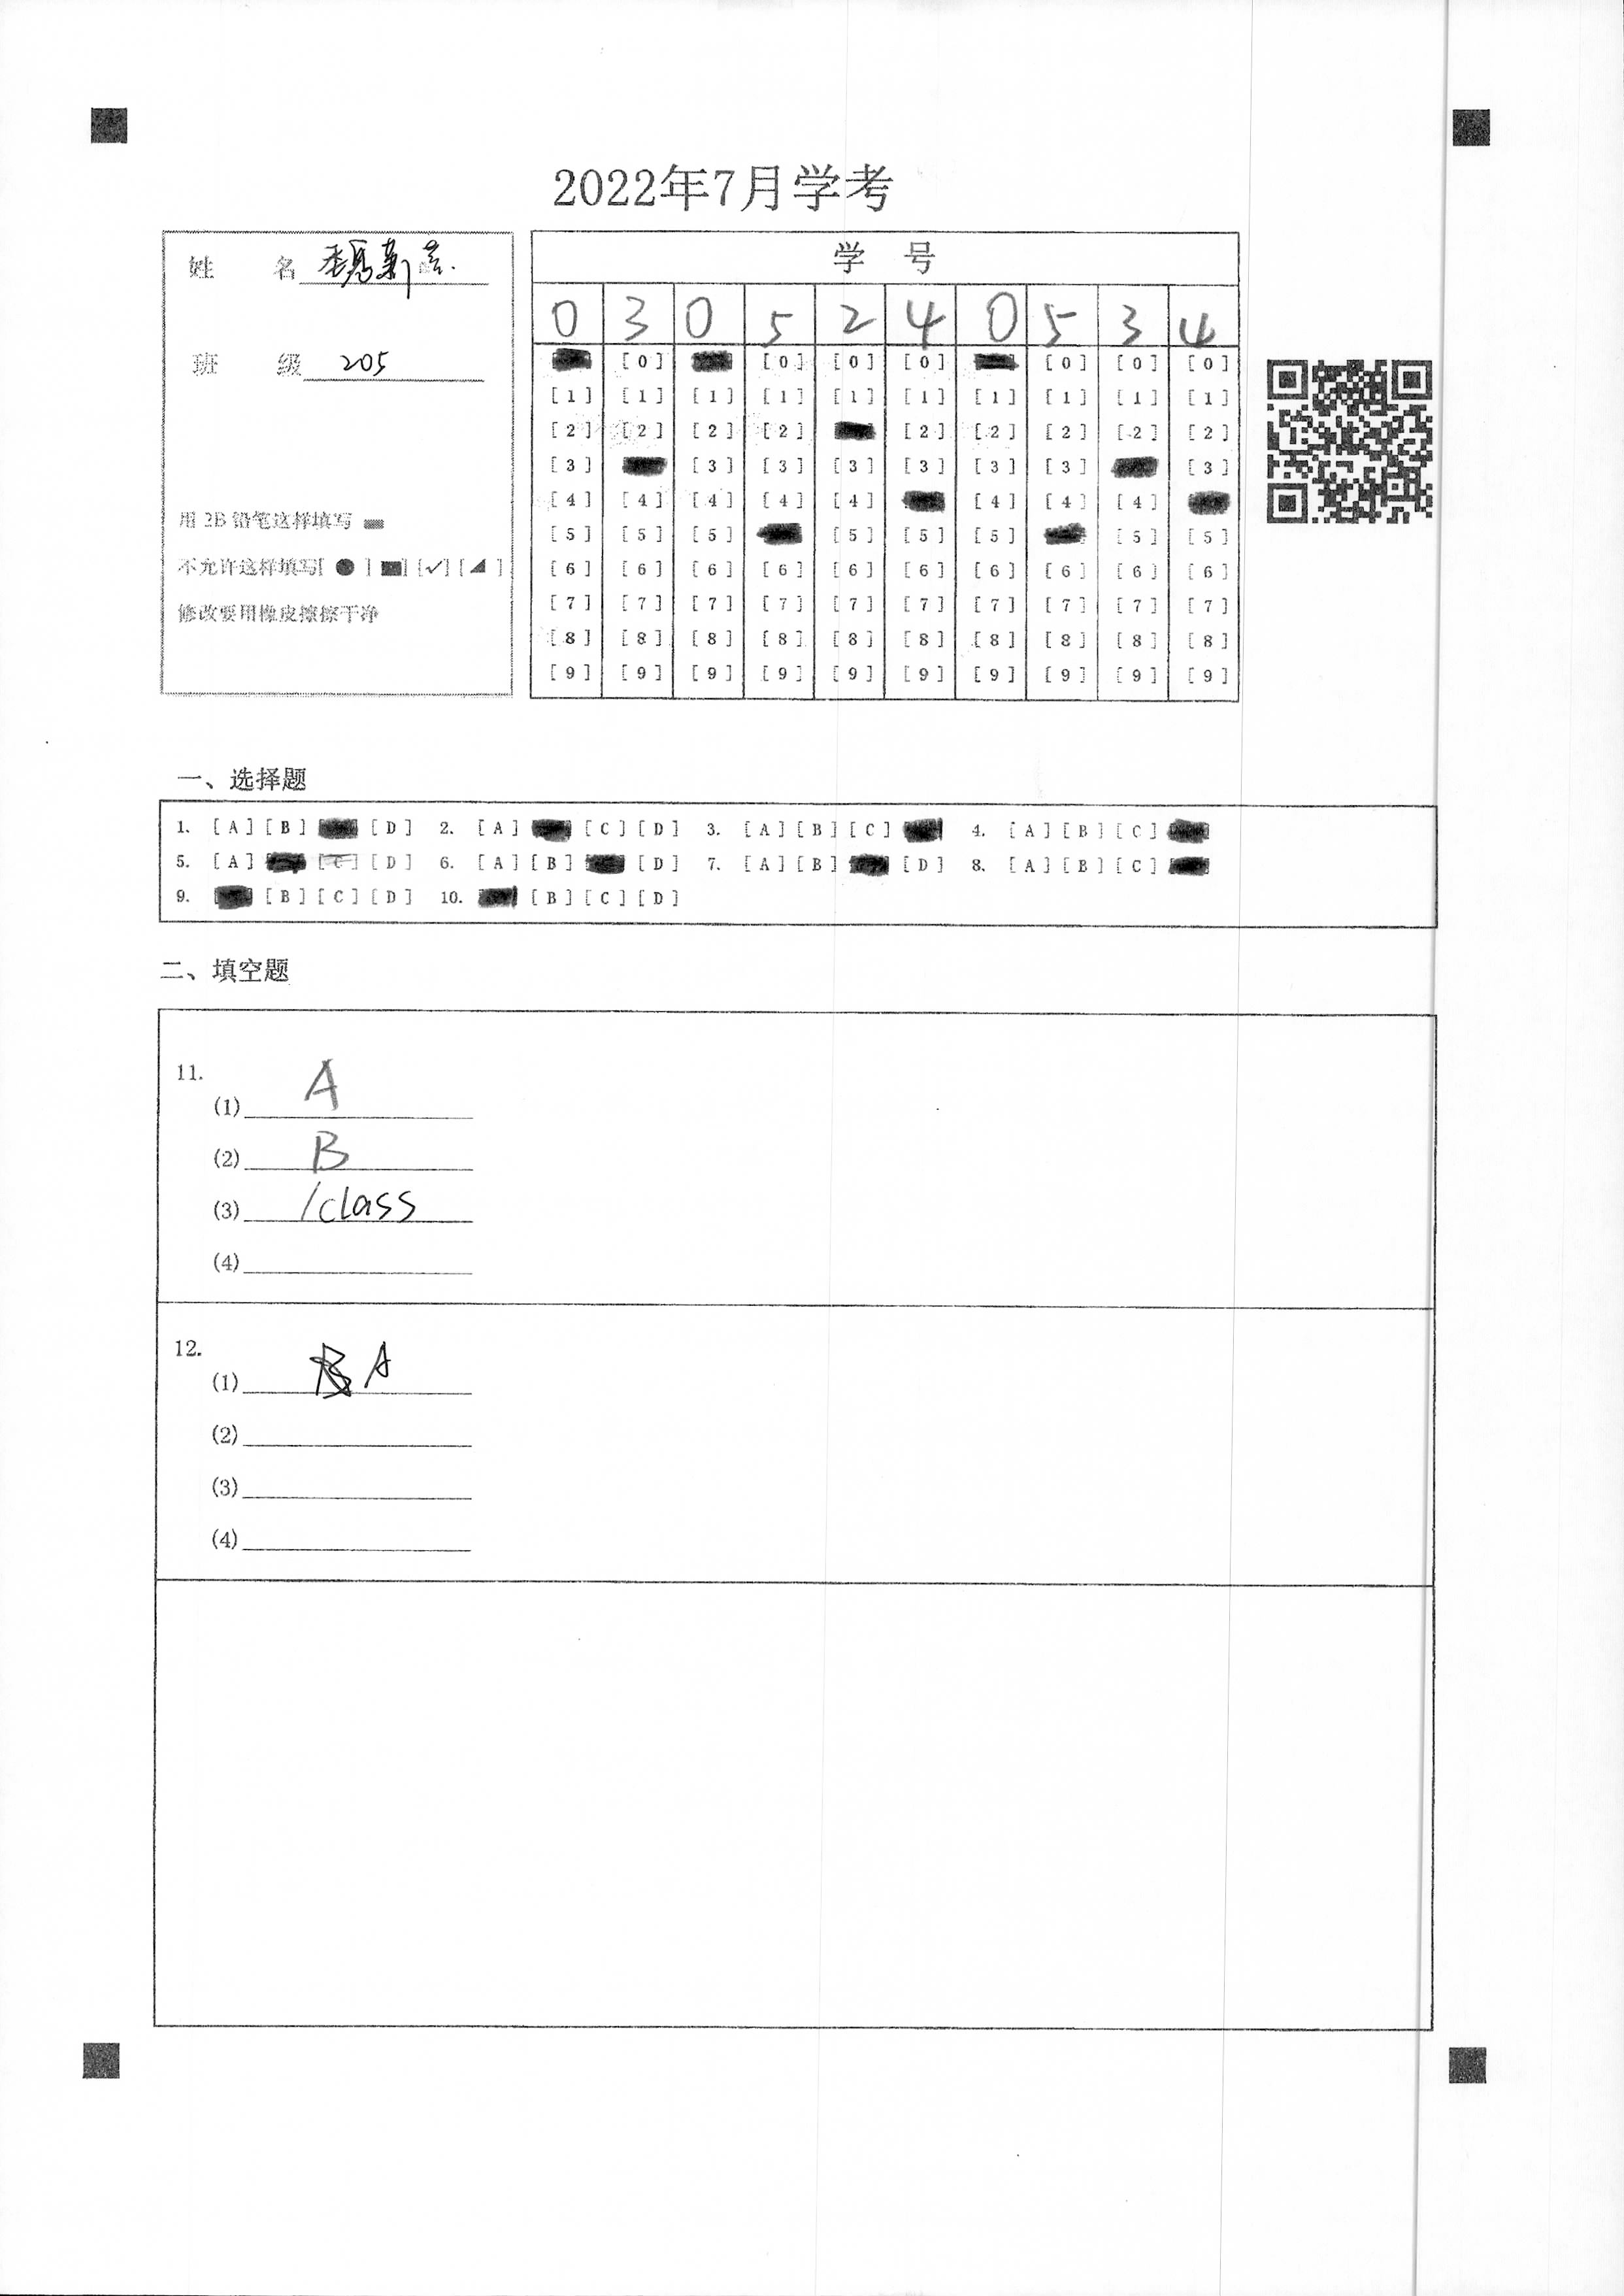 2022年7月学考
姓 名
班 级 205
用 2B 铅笔这样填写
不允许这样填写[ ● ] [■] [✓] [◢]
修改要用橡皮擦擦干净
学 号
0 3 0 5 2 4 0 5 3 4
[0] [0] [0] [0] [0] [0] [0]
[1] [1] [1] [1] [1] [1] [1] [1] [1] [1]
[2] [2] [2] [2] [2] [2] [2] [2] [2]
[3] [3] [3] [3] [3] [3] [3] [3]
[4] [4] [4] [4] [4] [4] [4] [4]
[5] [5] [5] [5] [5] [5] [5] [5]
[6] [6] [6] [6] [6] [6] [6] [6] [6] [6]
[7] [7] [7] [7] [7] [7] [7] [7] [7] [7]
[8] [8] [8] [8] [8] [8] [8] [8] [8] [8]
[9] [9] [9] [9] [9] [9] [9] [9] [9] [9]
一、选择题
1. [A] [B] [D] 2. [A] [C] [D] 3. [A] [B] [C] 4. [A] [B] [C]
5. [A] [C] [D] 6. [A] [B] [D] 7. [A] [B] [D] 8. [A] [B] [C]
9. [B] [C] [D] 10. [B] [C] [D]
二、填空题
11.
(1) A
(2) B
(3) /class
(4)
12.
(1) A
(2)
(3)
(4)